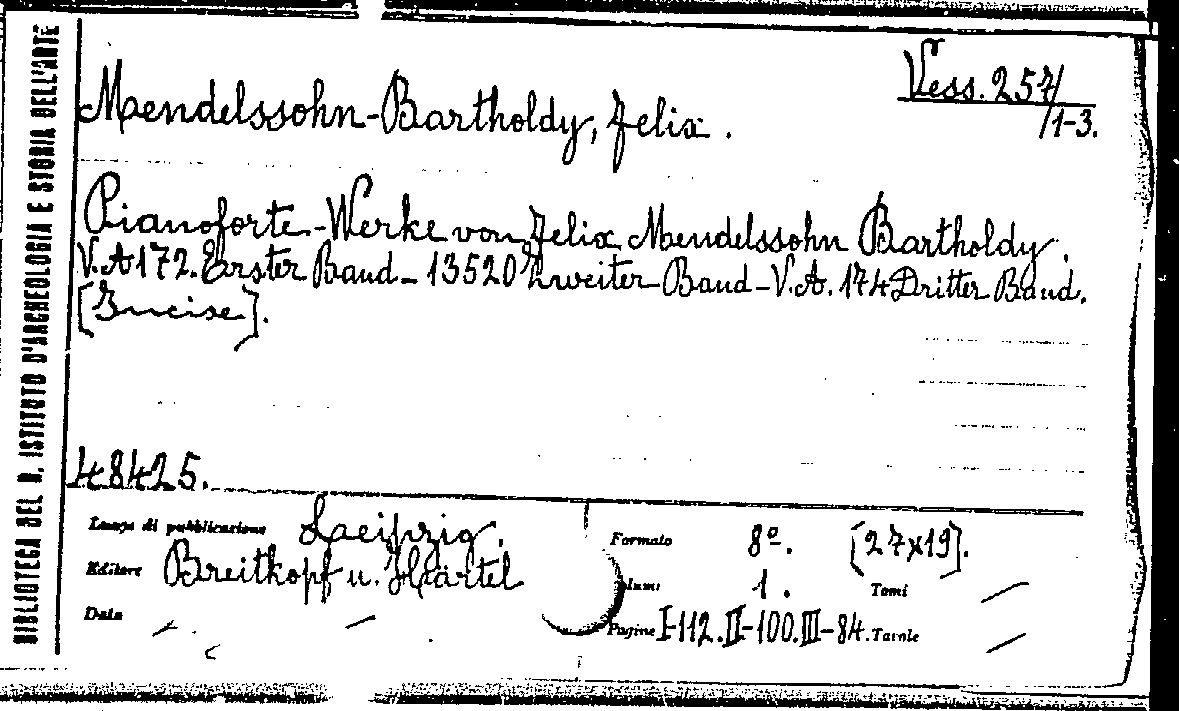 BIBLIOTECA DEL R. ISTITUTO D'ARCHEOLOGIA E STORIA DELL'ARTE
Vess. 257/
/1-3.
Mendelssohn-Bartholdy, Felix.
Pianoforte-Werke von Felix Mendelssohn Bartholdy.
V.A 172. Erster Band - 13520 Zweiter Band - V.A. 174 Dritter Band.
[Incise].
48425.
Luogo di pubblicazione Leipzig. Formato 8º. [27x19].
Editore Breitkopf u. Härtel 1. Tomi /
Data / / Pagine I-112. II-100. III-84. Tavole /